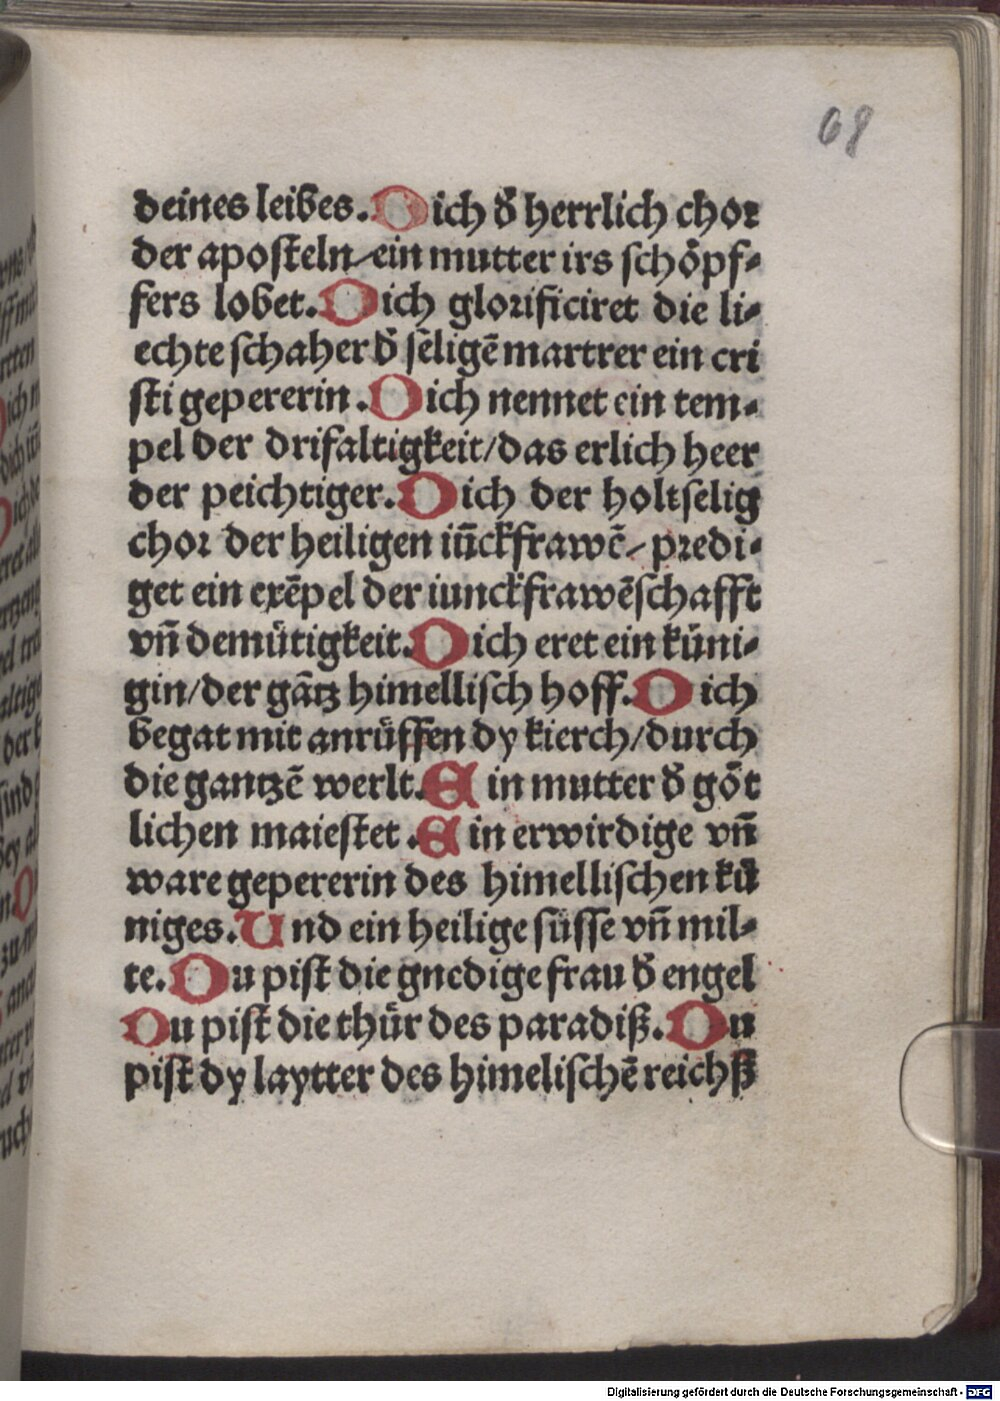 68
deines leibes. Dich d̄ herrlich chor
der aposteln/ein mutter irs schöpf⸗
fers lobet. Dich glorificiret die li⸗
echte schaher d̄ sēligē martrer ein cri
sti gepererin. Dich nennet ein tem⸗
pel der drifaltigkeit/das erlich heer
der peichtiger. Dich der holtselig
chor der heiligen iūckfrawē/predi⸗
get ein exēpel der iunckfrawēschafft
vn̄ demütigkeit. Dich eret ein küni⸗
gin/der gātz himellisch hoff. Dich
begat mit anrüffen dy kierch/durch
die gantzē werlt. Ein mutter d̄ göt
lichen maiestet. Ein erwirdige vn̄
ware gepererin des himellischen kü
niges. Und ein heilige süsse vn̄ mil⸗
te. Du pist die gnedige frau d̄ engel
Du pist die thür des paradiß. Du
pist dy laytter des himelischē reichß
Digitalisierung gefördert durch die Deutsche Forschungsgemeinschaft - DFG